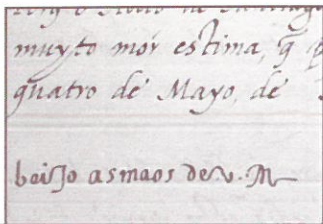 muyto mór estima, q
quatro de Mayo, de
beijo as maos de v. M